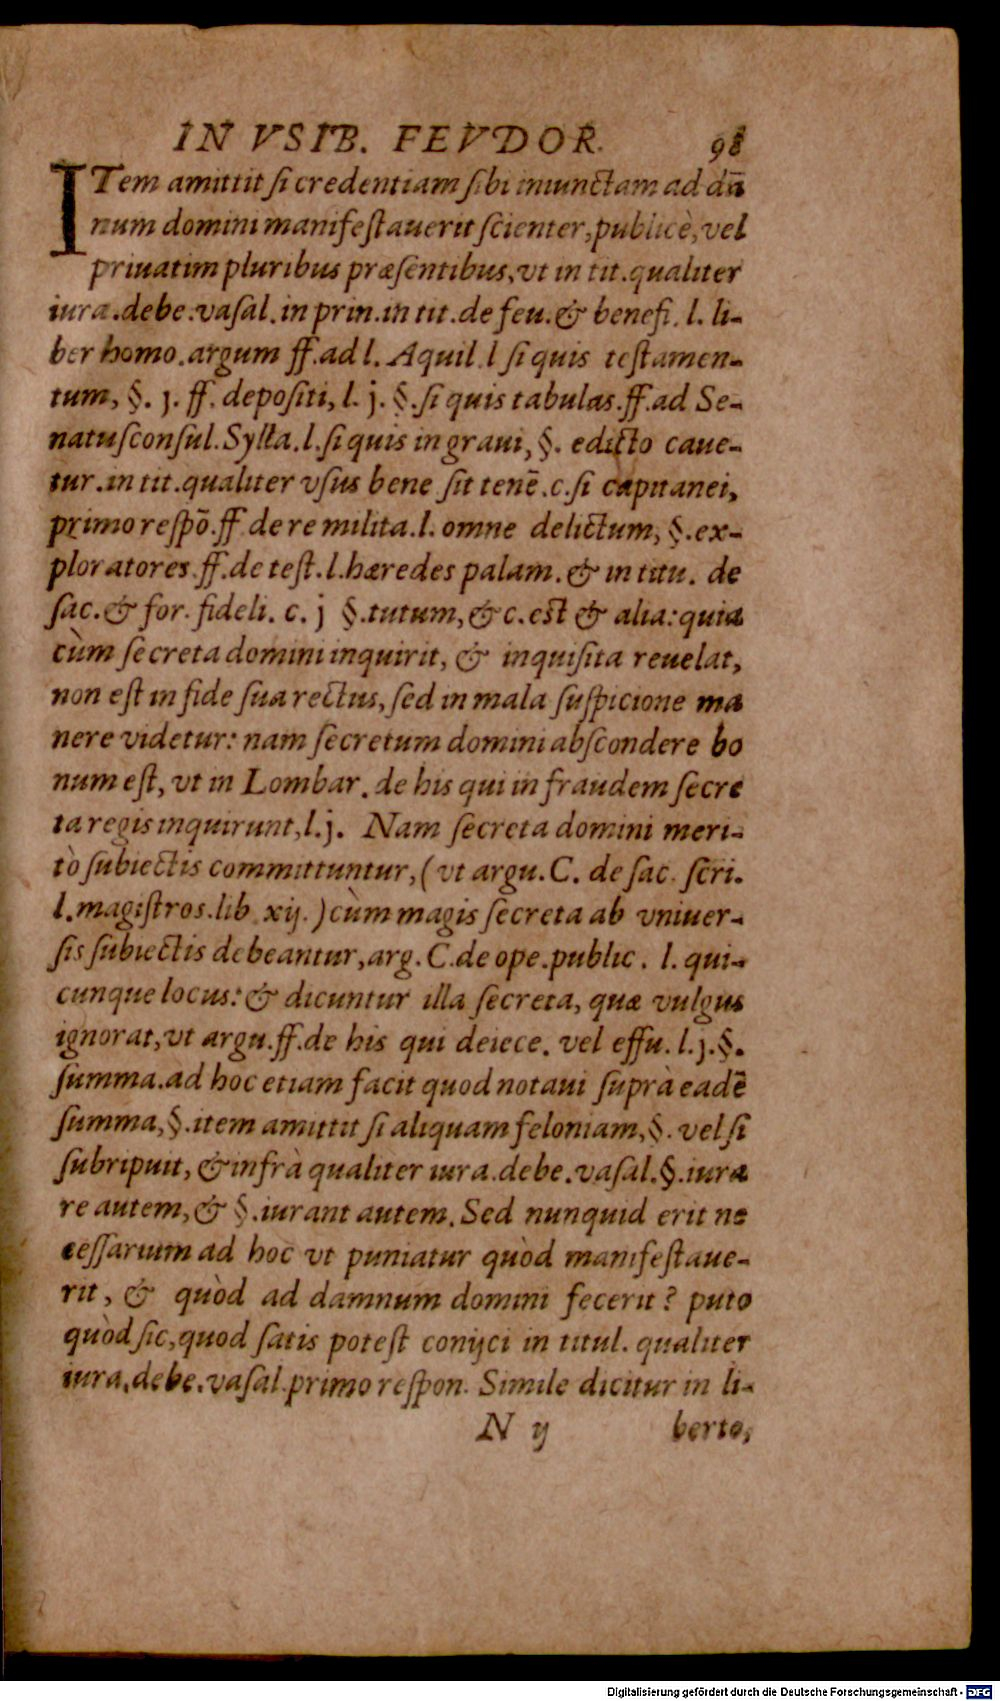 IN VSIB. FEVDOR. 98
ITem amittit ſi credentiam ſibi iniunctam ad dã
num domini manifeſtauerit ſcienter, publicè, vel
priuatim pluribus præſentibus, vt in tit. qualiter
iura. debe. vaſal. in prin. in tit. de feu. & benefi. l. li-
ber homo. argum ff. ad l. Aquil. l ſi quis teſtamen-
tum, §. j. ff. depoſiti, l. j. §. ſi quis tabulas. ff. ad Se-
natuſconſul. Sylla. l. ſi quis in graui, §. edicto caue-
tur. in tit. qualiter vſus bene ſit tenẽ. c. ſi capitanei,
primo reſpõ. ff de re milita. l. omne delictum, §. ex-
ploratores. ff. de teſt. l. hæredes palam. & in titu. de
ſac. & for. fideli. c. j §. tutum, & c. est & alia: quia
cùm ſecreta domini inquirit, & inquiſita reuelat,
non eſt in fide ſua rectus, ſed in mala ſuſpicione ma
nere videtur: nam ſecretum domini abſcondere bo
num eſt, vt in Lombar. de his qui in fraudem ſecre
ta regis inquirunt, l. j. Nam ſecreta domini meri-
tò ſubiectis committuntur, (vt argu. C. de ſac. ſcri.
l. magiſtros. lib xij.) cùm magis ſecreta ab vniuer-
ſis ſubiectis debeantur, arg. C. de ope. public. l. qui-
cunque locus: & dicuntur illa ſecreta, quæ vulgus
ignorat, vt argu. ff. de his qui deiece. vel effu. l. j. §.
ſumma. ad hoc etiam facit quod notaui ſuprà eadẽ
ſumma, §. item amittit ſi aliquam feloniam, §. vel ſi
ſubripuit, & infrà qualiter iura. debe. vaſal. §. iura
re autem, & §. iurant autem. Sed nunquid erit ne
ceſſarium ad hoc vt puniatur quòd manifeſtaue-
rit, & quòd ad damnum domini fecerit? puto
quòd ſic, quod ſatis poteſt conijci in titul. qualiter
iura. debe. vaſal. primo reſpon. Simile dicitur in li-
N ij berto,
Digitalisierung gefördert durch die Deutsche Forschungsgemeinschaft - DFG